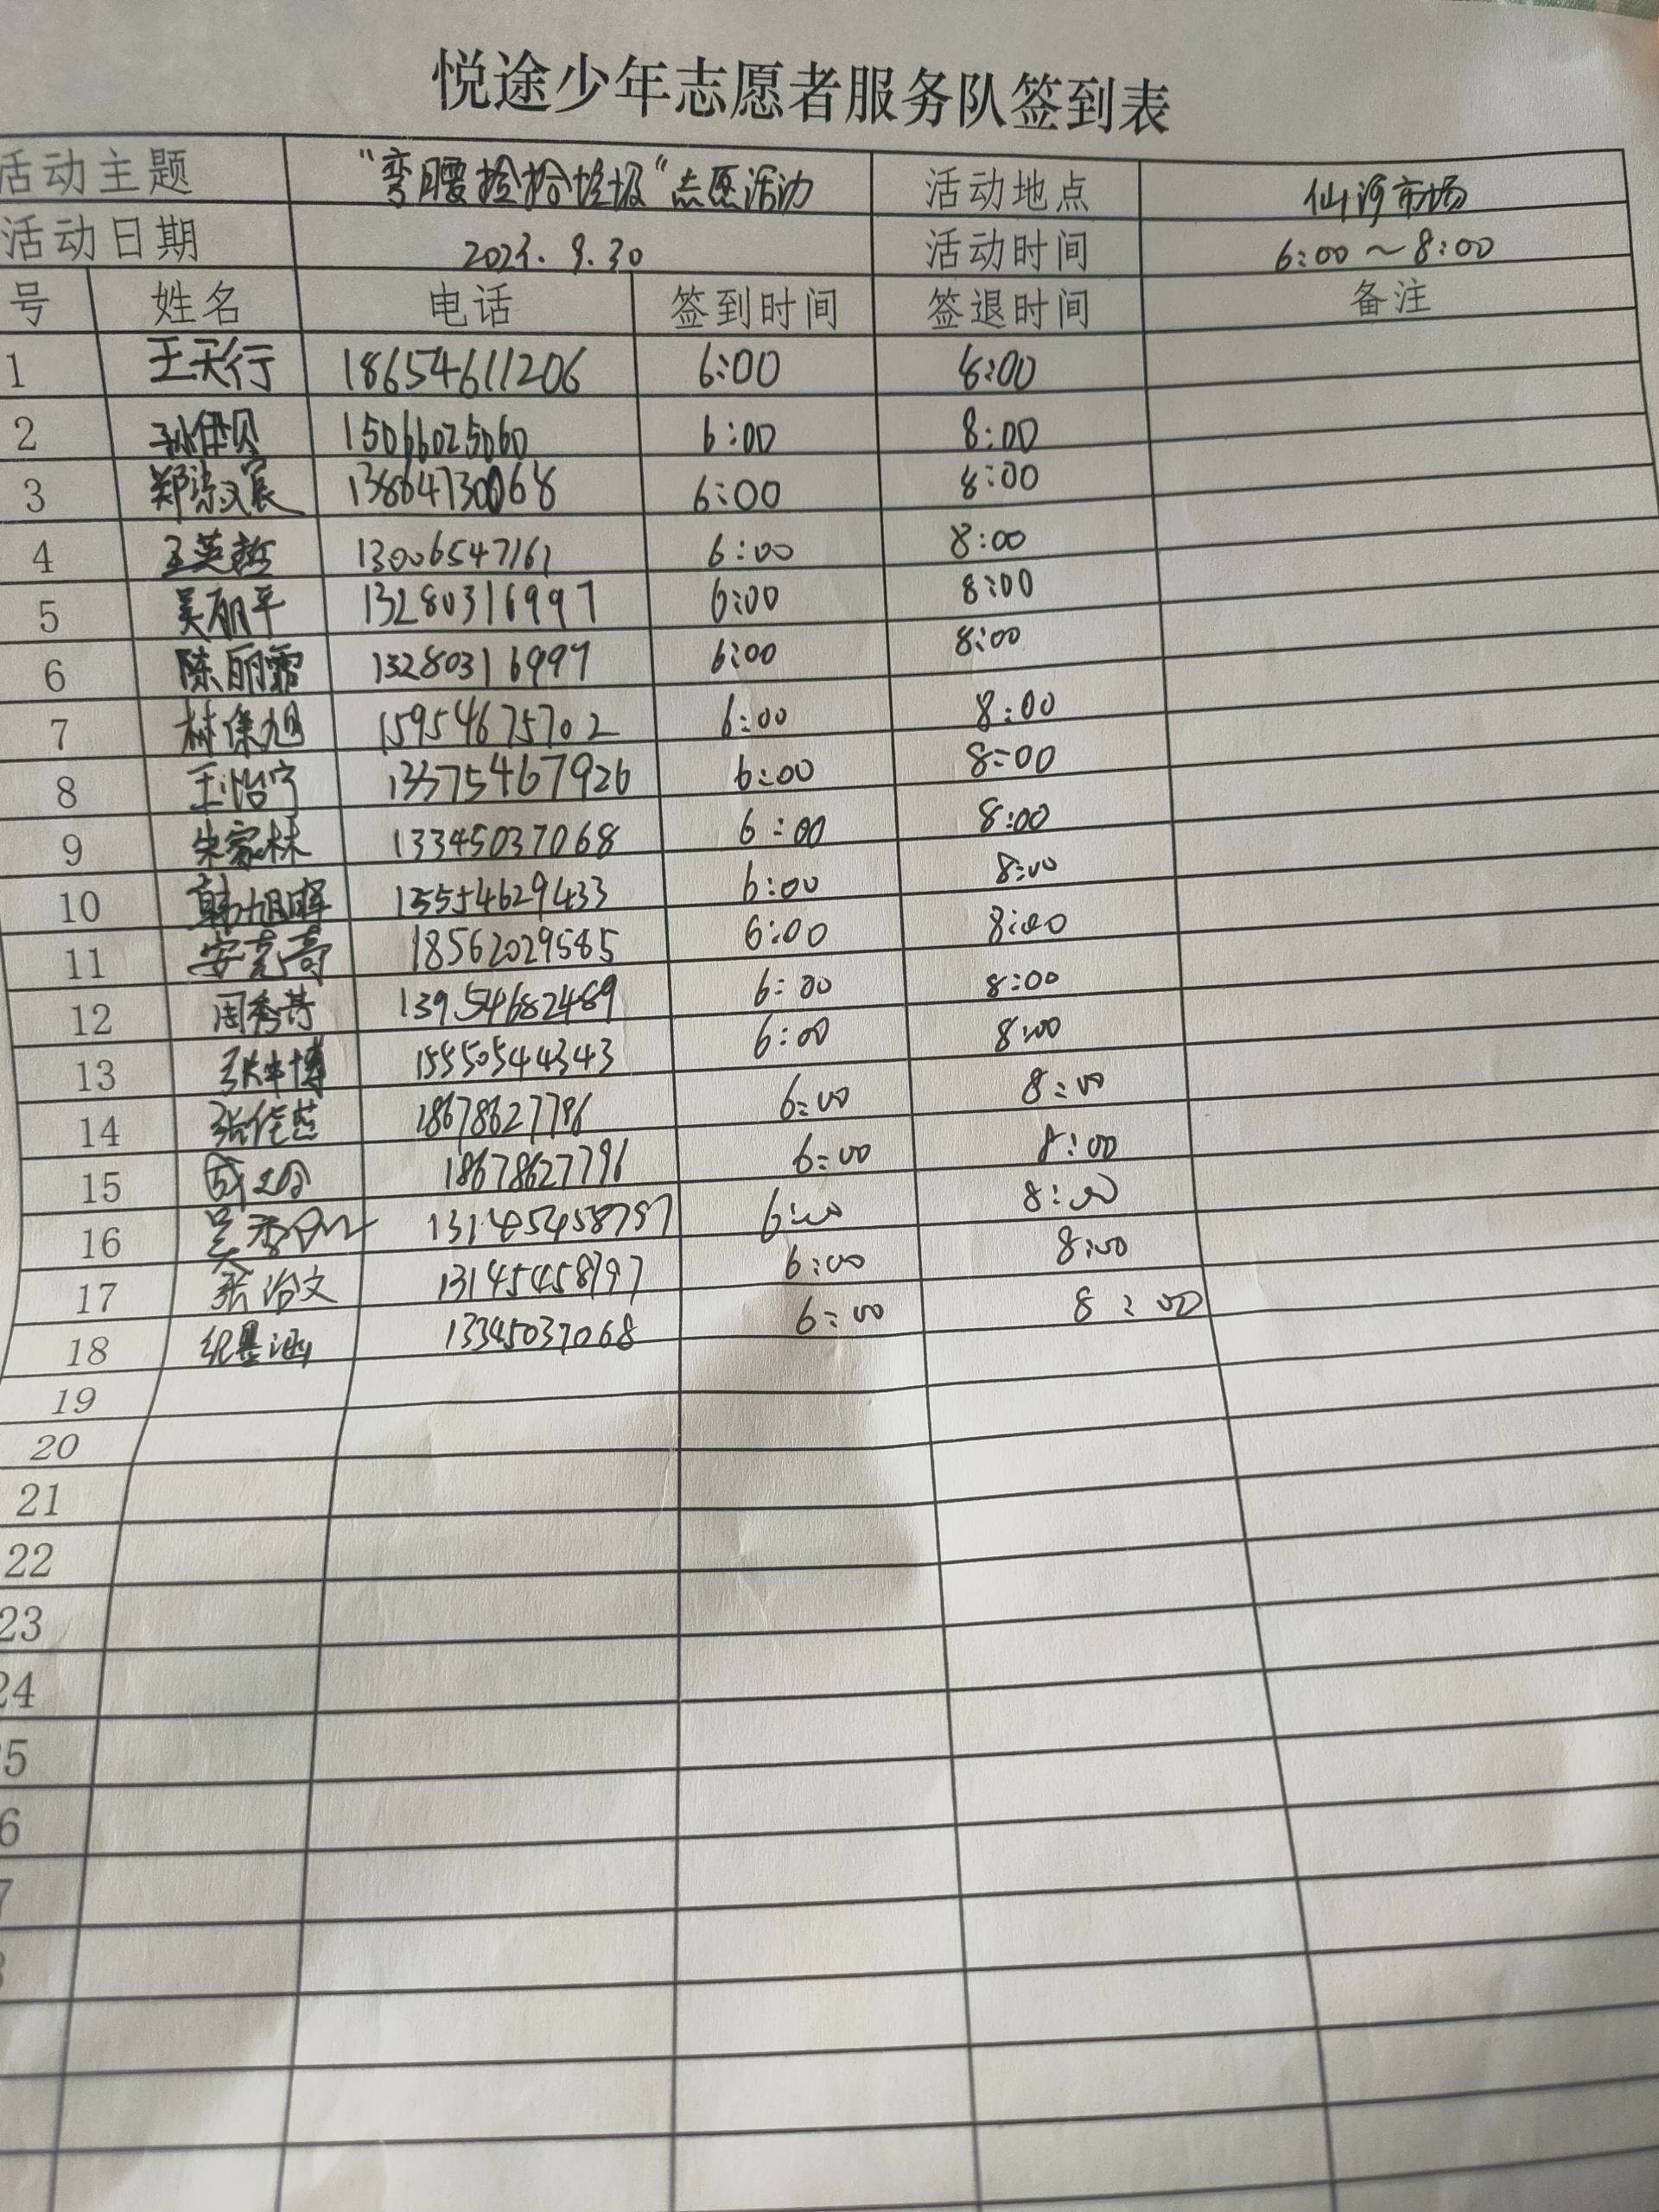 悦途少年志愿者服务队签到表
活动主题 "弯腰捡拾垃圾"志愿活动 活动地点 仙河市场
活动日期 2023.9.30 活动时间 6:00～8:00
号 姓名 电话 签到时间 签退时间 备注
1 王天行 18654611206 6:00 8:00
2 15066025060 6:00 8:00
3 13864730068 6:00 8:00
4 王英哲 13006547161 6:00 8:00
5 吴丽平 13280316997 6:00 8:00
6 陈丽霜 13280316997 6:00 8:00
7 林保旭 15954675702 6:00 8:00
8 王怡宁 13375467926 6:00 8:00
9 朱家林 13345037068 6:00 8:00
10 韩旭晖 13554629433 6:00 8:00
11 18562029585 6:00 8:00
12 周秀芳 13954682489 6:00 8:00
13 15550544343 6:00 8:00
14 张佳慧 18678627796 6:00 8:00
15 18678627796 6:00 8:00
16 6:00 8:00
17 张治文 13145458797 6:00 8:00
18 纪墨涵 13345037068 6:00 8:00
19
20
21
22
23
24
5
6
7